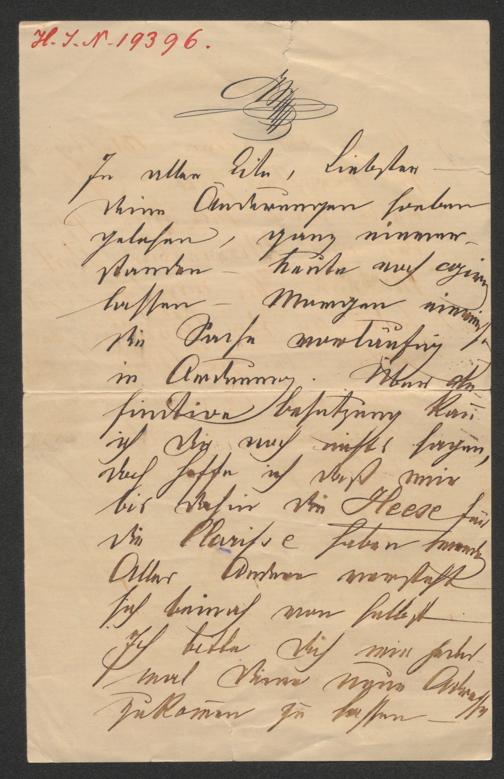 H. I. N. 19396.
In aller Eile, Liebster —
Deine Änderungen soeben
gelesen, ganz einver-
standen — heute noch
lassen — Morgen
die Sache vorläufig
in Ordnung. Über de-
finitive Besetzung kann
ich Dir noch nichts sagen,
doch hoffe ich daß wir
bis dahin die Heese für
die Clarisse haben werden
Alles Andere versteht
sich beinah von selbst.
Ich bitte Dich mir
mal Deine neue Adresse
zukommen zu lassen —